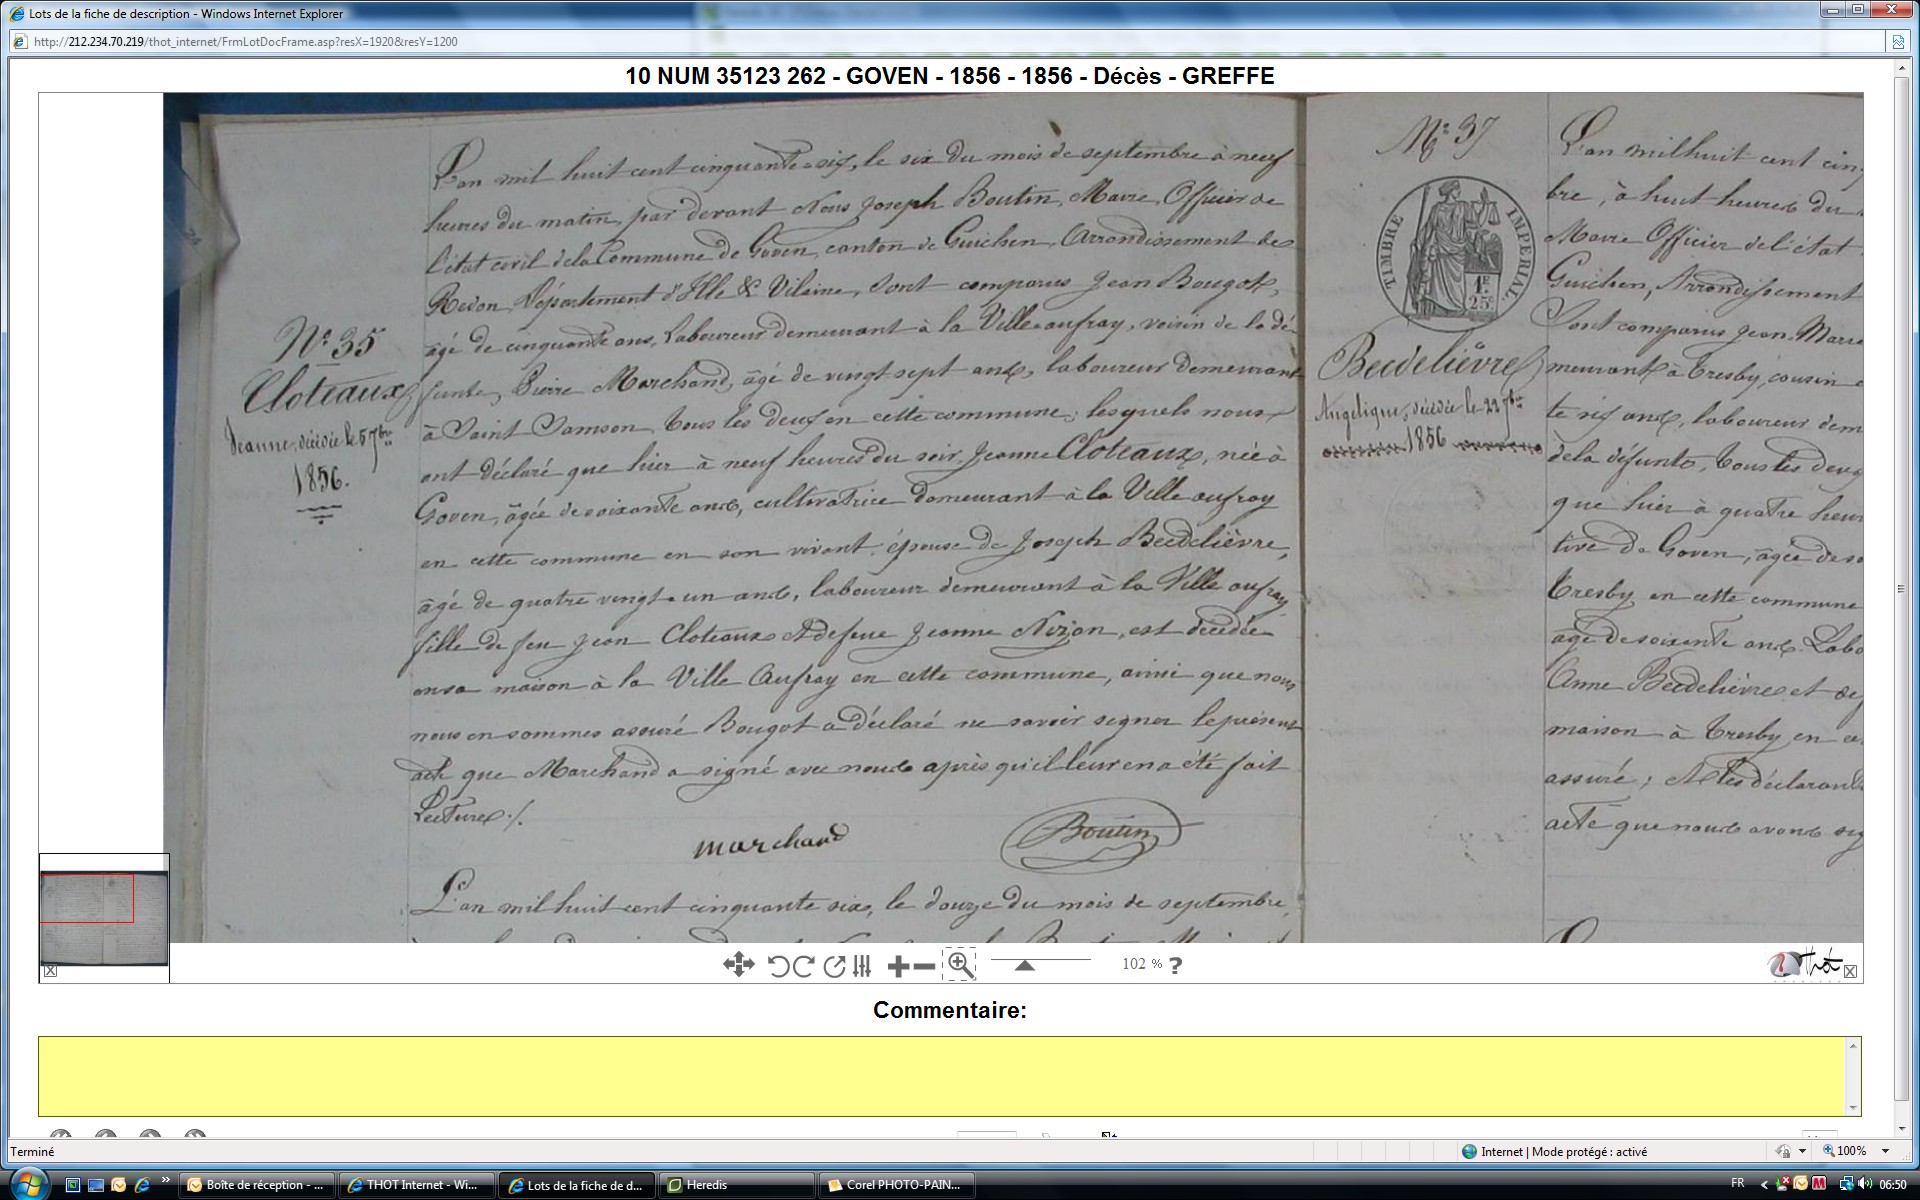 Lots de la fiche de description - Windows Internet Explorer
http://212.234.70.219/thot_internet/FrmLotDocFrame.asp?resX=1920&resY=1200
10 NUM 35123 262 - GOVEN - 1856 - 1856 - Décès - GREFFE
N° 35
Cloteaux
Jeanne, décédée le 5 7bre
1856.
L'an mil huit cent cinquante-six, le six du mois de septembre à neuf
heures du matin, par devant Nous Joseph Boutin, Maire, Officier de
l'état civil de la Commune de Goven, canton de Guichen, Arrondissement de
Redon, Département d'Ille & Vilaine, sont comparus Jean Bougot,
âgé de cinquante ans, Laboureur demeurant à la Ville aufray, voisin de la dé-
funte, Pierre Marchand, âgé de vingt sept ans, laboureur demeurant
à Saint Samson, tous les deux en cette commune, lesquels nous
ont déclaré que hier à neuf heures du soir, Jeanne Cloteaux, née à
Goven, âgée de soixante ans, cultivatrice demeurant à la Ville aufray
en cette commune en son vivant épouse de Joseph Becdelièvre,
âgé de quatre vingt-un ans, laboureur demeurant à la Ville aufray,
fille de feu Jean Cloteaux et defeue Jeanne Nizon, est décédée
en sa maison à la Ville Aufray en cette commune, ainsi que nous
nous en sommes assuré Bougot a déclaré ne savoir signer le présent
acte que Marchand a signé avec nous après qu'il leur en a été fait
Lecture ./.
marchand
Boutin
L'an mil huit cent cinquante six, le douze du mois de septembre,
N° 37
TIMBRE IMPERIAL
1F
25c
Becdelièvre
Angelique, décédée le 22 7bre
1856
L'an mil huit cent cin
bre, à huit heures du
Maire Officier de l'état
Guichen, Arrondissement
Sont comparus Jean-Marie
meurant à Tresby, cousin
te six ans, laboureur dem
de la défunte, tous les deux
que hier à quatre heur
tive de Goven, âgée de so
Tresby en cette commune
âgé de soixante ans Labo
Anne Becdelièvre et de
maison à Tresby en ce
assuré; Et les déclarant
acte que nous avons sig
102 % ?
Thot
Commentaire:
Terminé
Internet | Mode protégé : activé
100%
Boîte de réception - ...
THOT Internet - Wi...
Lots de la fiche de d...
Heredis
Corel PHOTO-PAIN...
FR
06:50